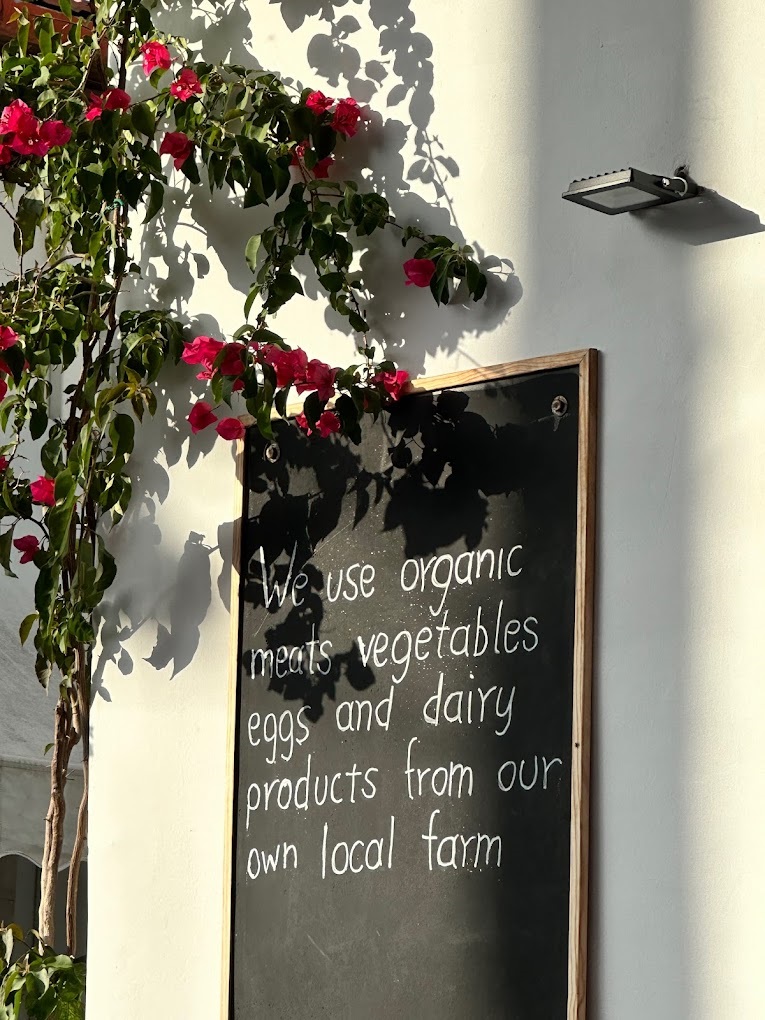 We use organic
meats vegetables
eggs and dairy
products from our
own local farm